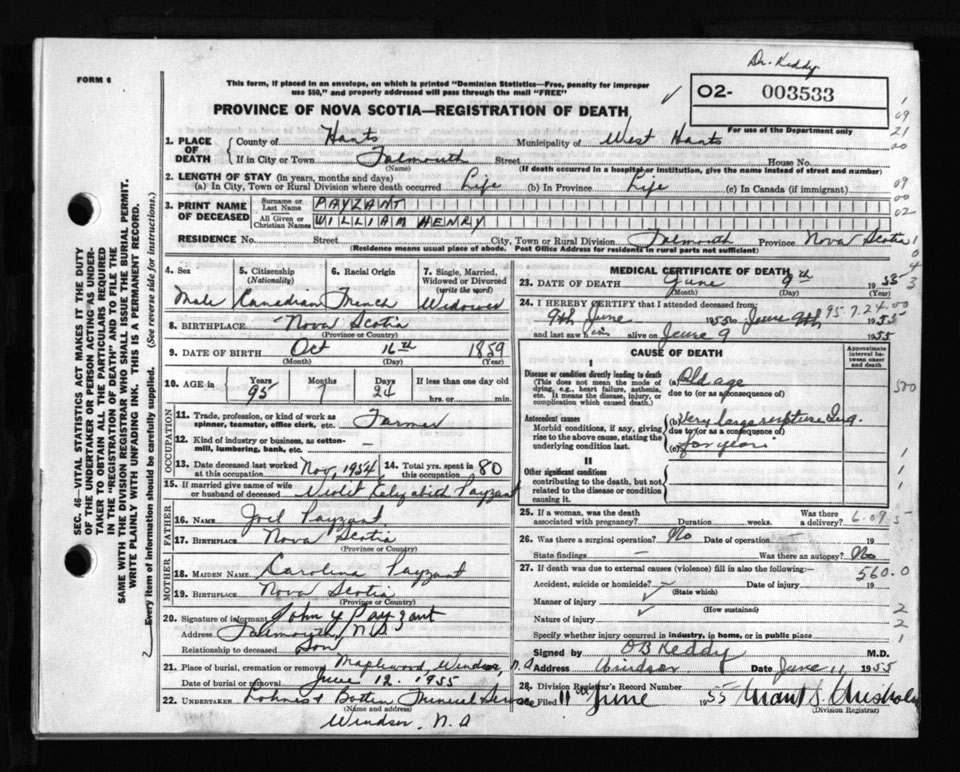 Dr. Keddy
FORM 6
This form, if placed in an envelope, on which is printed "Dominion Statistics—Free, penalty for improper
use $50," and properly addressed will pass through the mail "FREE"
✓
02- 003533
PROVINCE OF NOVA SCOTIA—REGISTRATION OF DEATH
For use of the Department only
1. PLACE OF DEATH
County of Hants Municipality of West Hants
If in City or Town Falmouth Street House No.
(Name) (If death occurred in a hospital or institution, give the name instead of street and number)
2. LENGTH OF STAY (in years, months and days)
(a) In City, Town or Rural Division where death occurred Life (b) In Province Life (c) In Canada (if immigrant)
3. PRINT NAME OF DECEASED
Surname or Last Name PAYZANT
All Given or Christian Names WILLIAM HENRY
RESIDENCE No. Street City, Town or Rural Division Falmouth Province Nova Scotia
(Residence means usual place of abode. Post Office Address for residents in rural parts not sufficient)
4. Sex 5. Citizenship (Nationality) 6. Racial Origin 7. Single, Married, Widowed or Divorced (write the word)
Male Canadian French Widower
8. BIRTHPLACE Nova Scotia
(Province or Country)
9. DATE OF BIRTH Oct 16th 1859
(Month) (Day) (Year)
10. AGE in Years Months Days If less than one day old
95 7 24 hrs. or min.
OCCUPATION
11. Trade, profession, or kind of work as
spinner, teamster, office clerk, etc. Farmer
12. Kind of industry or business, as cotton-
mill, lumbering, bank, etc. —
13. Date deceased last worked at this occupation Nov, 1954 14. Total yrs. spent in this occupation 80
15. If married give name of wife
or husband of deceased Violet Elizabeth Payzant
FATHER
16. NAME Joel Payzant
17. BIRTHPLACE Nova Scotia
(Province or Country)
MOTHER
18. MAIDEN NAME Carolina Payzant
19. BIRTHPLACE Nova Scotia
(Province or Country)
20. Signature of informant John Y Payzant
Address Falmouth, N.S.
Relationship to deceased Son
21. Place of burial, cremation or removal Maplewood, Windsor, N.S
Date of burial or removal June 12. 1955
22. UNDERTAKER Funeral Service
(Name and address)
Windsor, N.S
MEDICAL CERTIFICATE OF DEATH
23. DATE OF DEATH June 9th 1955
(Month) (Day) (Year)
24. I HEREBY CERTIFY that I attended deceased from:
95.7.24.00
9th June 1955 to June 9th 1955
and last saw him alive on June 9 1955
CAUSE OF DEATH
Approximate interval between onset and death
I
Disease or condition directly leading to death
(This does not mean the mode of dying, e.g., heart failure, asthenia, etc. It means the disease, injury, or complication which caused death.)
(a) Old age
due to (or as a consequence of)
Antecedent causes
Morbid conditions, if any, giving rise to the above cause, stating the underlying condition last.
(b) Very large rupture Ing.
due to (or as a consequence of)
(c) for years
II
Other significant conditions
contributing to the death, but not related to the disease or condition causing it.
25. If a woman, was the death associated with pregnancy? Duration weeks. Was there a delivery?
26. Was there a surgical operation? No Date of operation 19
State findings — Was there an autopsy? No
27. If death was due to external causes (violence) fill in also the following:—
560.0
Accident, suicide or homicide? Date of injury 19
(State which)
Manner of injury
(How sustained)
Nature of injury
Specify whether injury occurred in industry, in home, or in public place
Signed by DB Keddy M.D.
Address Windsor Date June 11 1955
28. Division Registrar's Record Number
Filed 11th June 1955
(Division Registrar)
SEC. 46—VITAL STATISTICS ACT MAKES IT THE DUTY
OF THE UNDERTAKER OR PERSON ACTING AS UNDER-
TAKER TO OBTAIN ALL THE PARTICULARS REQUIRED
IN THE "REGISTRATION OF DEATH" AND TO FILE THE
SAME WITH THE DIVISION REGISTRAR WHO SHALL ISSUE THE BURIAL PERMIT.
WRITE PLAINLY WITH UNFADING INK. THIS IS A PERMANENT RECORD.
Every item of information should be carefully supplied. (See reverse side for instructions.)